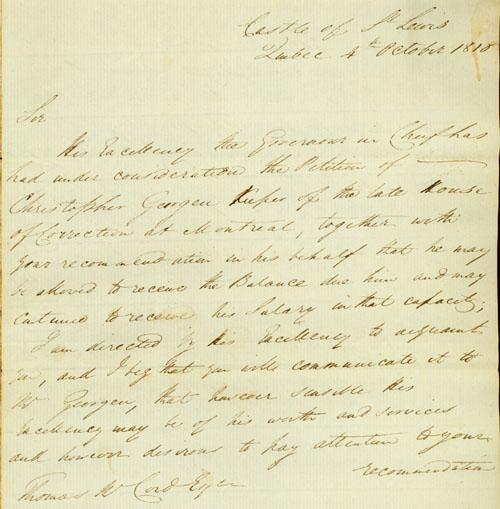 Castle of St Lewis
Quebec 4th October 1810
Sir
His Excellency the Governour in Chief has
had under consideration the Petition of
Christopher Georgen Keeper of the late House
of Correction at Montreal, together with
your recommendation in his behalf that he may
be allowed to receive the Balance due him and may
continue to receive his Salary in that capacity;
I am directed by His Excellency to acquaint
you, and I beg that you will communicate it to
Mr Georgen, that however sensible His
Excellency may be of his worth and services
and however desirous to pay attention to your
recommendation
Thomas Mc Cord Esqr